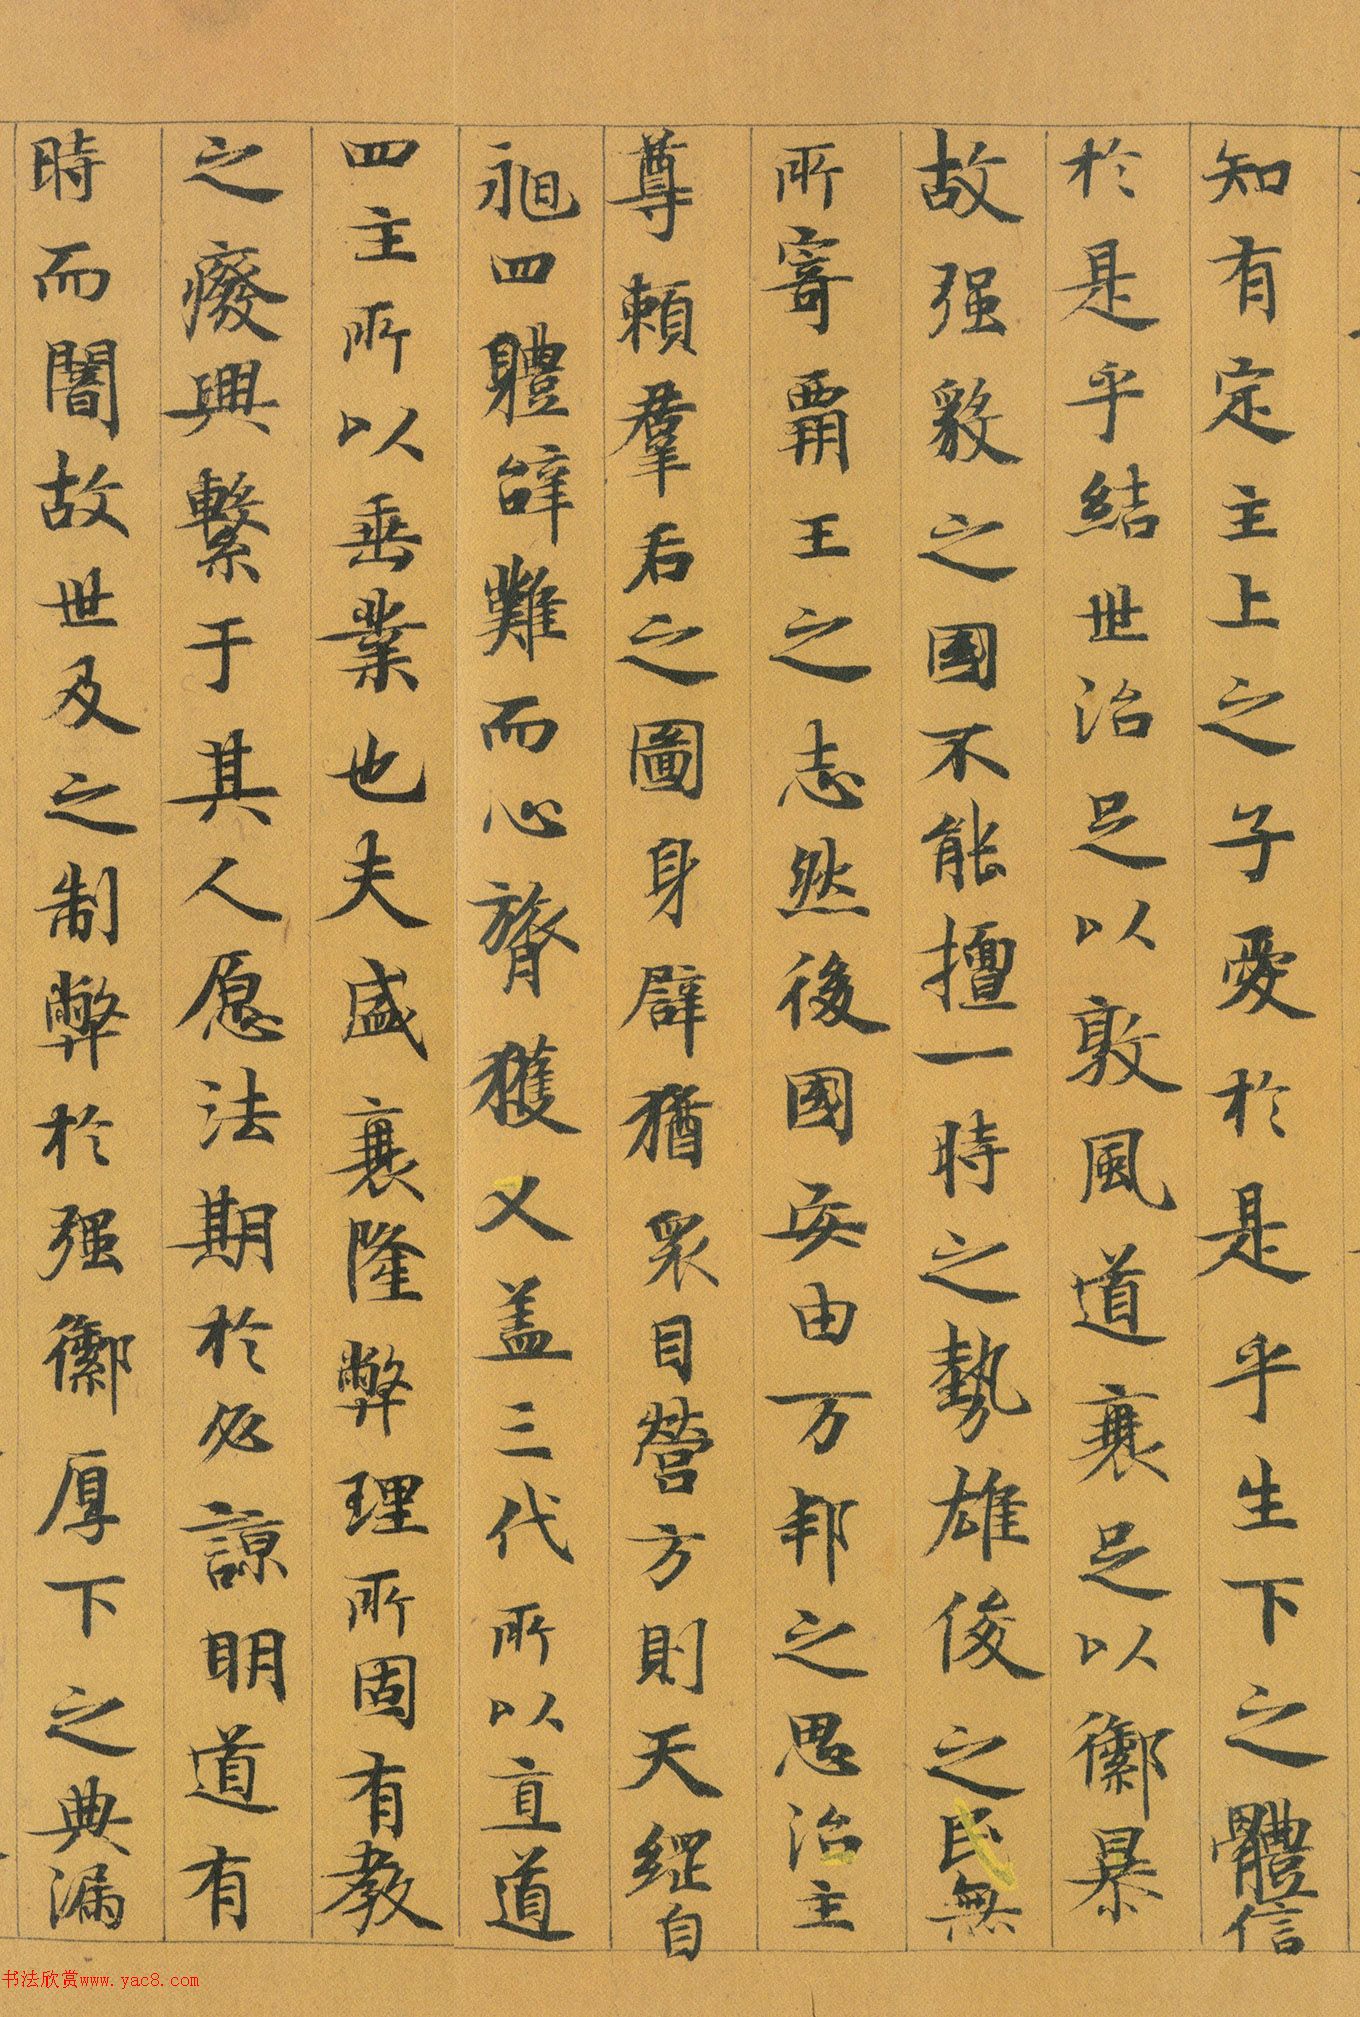 知有定主上之子愛於是乎生下之體信
於是乎結世治足以敦風道衰足以禦暴
故强毅之國不能擅一時之勢雄俊之民無
所寄覇王之志然後國安由万邦之思治主
尊頼羣后之圖身辟猶衆目營方則天網自
昶四體辭難而心膂獲乂盖三代所以直道
四主所以垂業也夫盛衰隆弊理所固有教
之廢興繫于其人愿法期於必諒明道有
時而闇故世及之制弊於强禦厚下之典漏
书法欣赏www.yac8.com